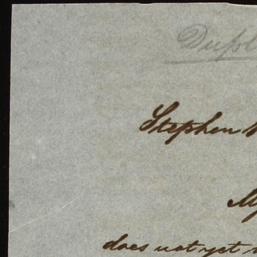 Dupl
Stephen
My
does not yet